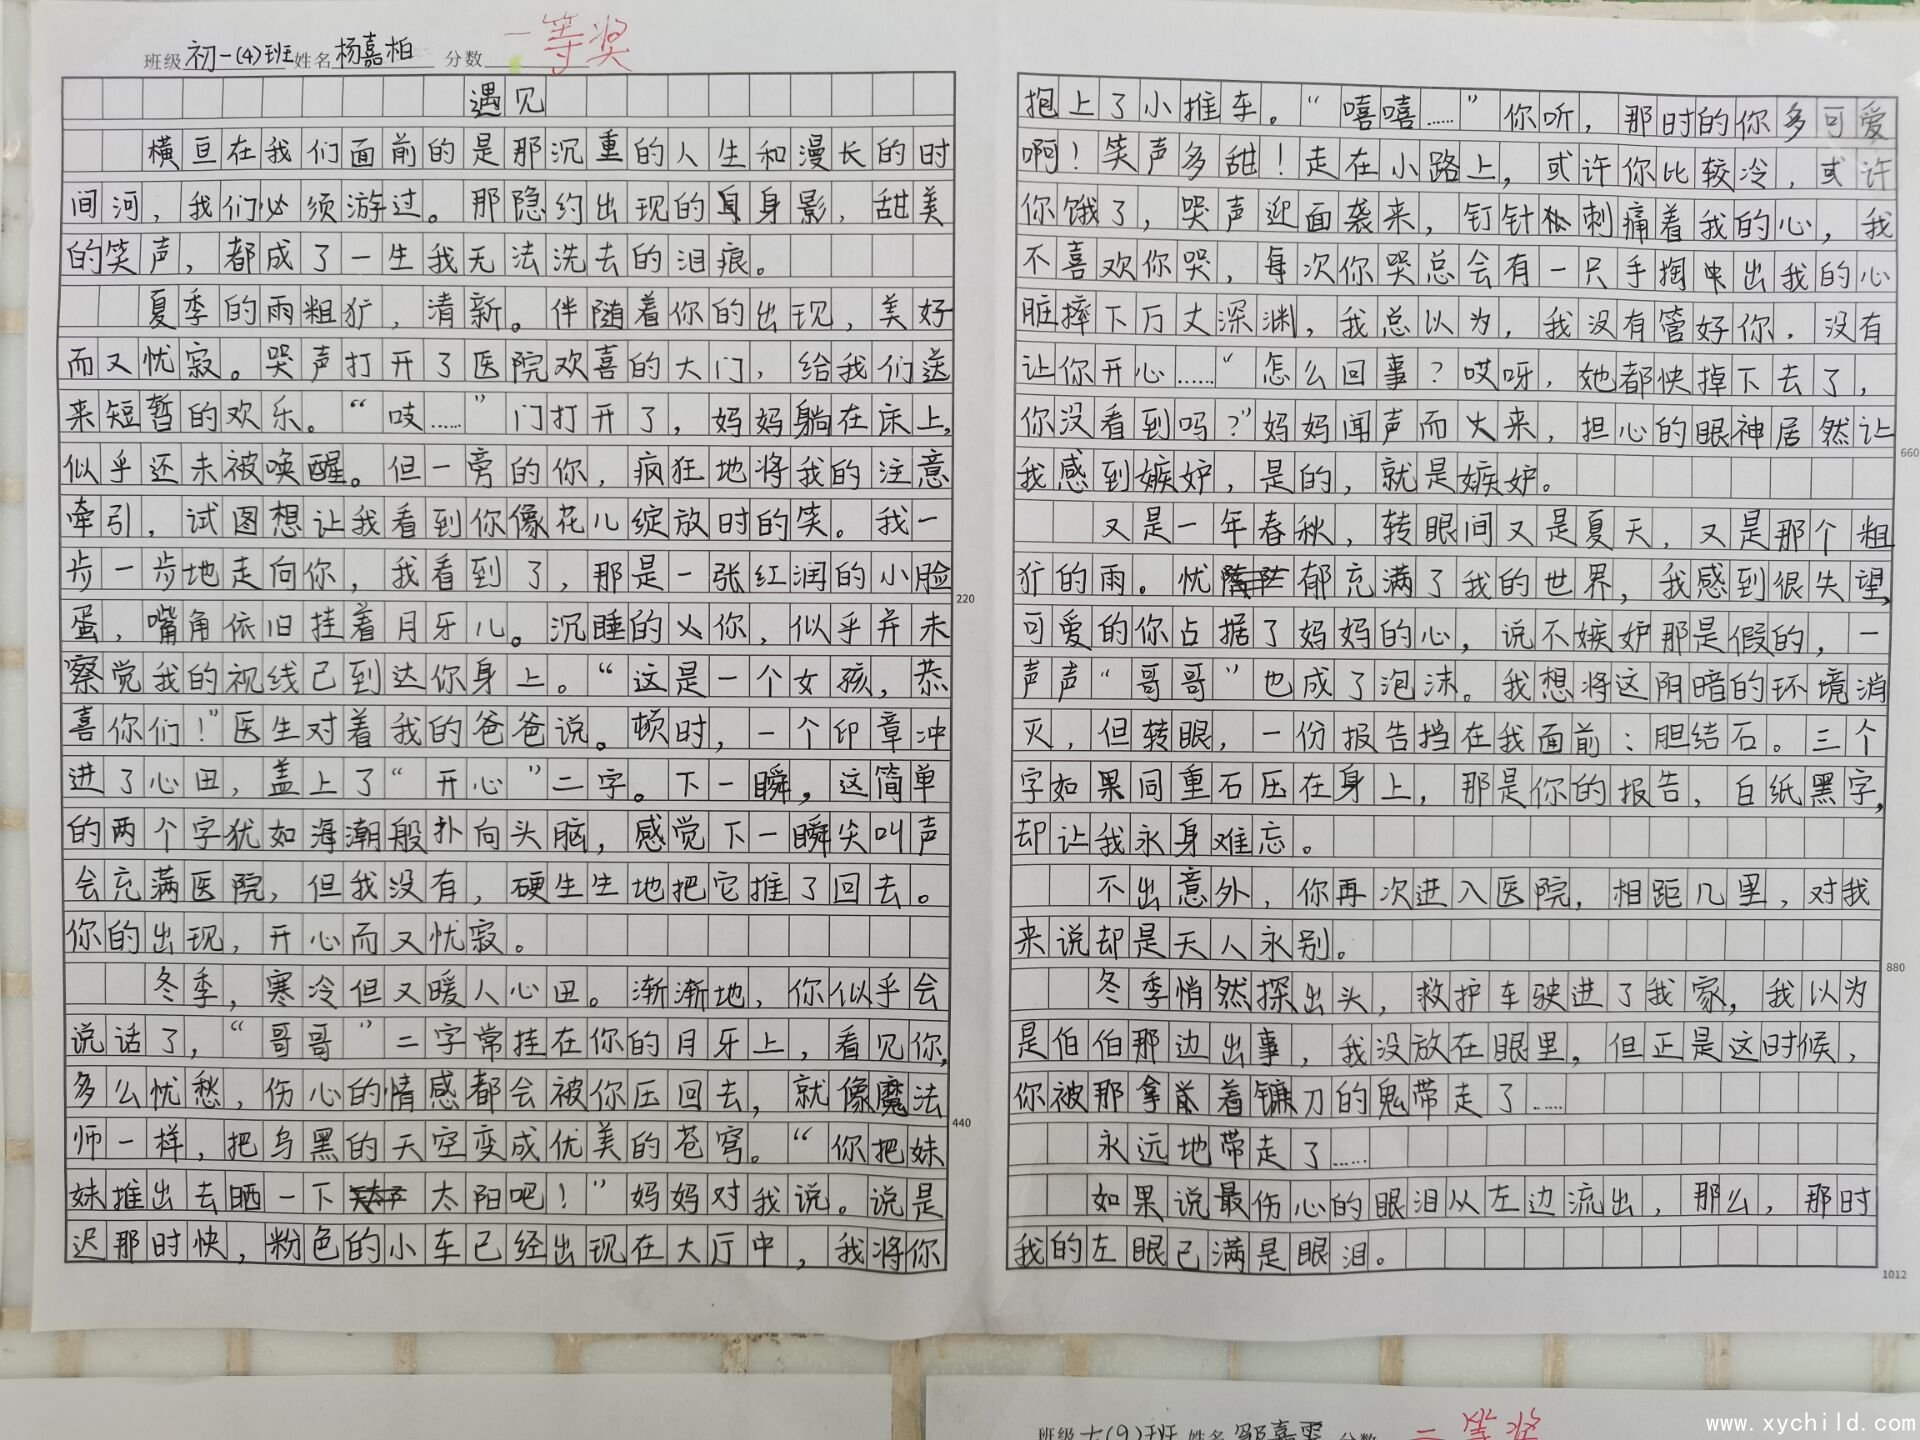 班级 初一(4)班 姓名 杨嘉柏 分数 一等奖
遇见
横亘在我们面前的是那沉重的人生和漫长的时
间河，我们必须游过。那隐约出现的身影，甜美
的笑声，都成了一生我无法洗去的泪痕。
夏季的雨粗犷，清新。伴随着你的出现，美好
而又忧寂。哭声打开了医院欢喜的大门，给我们送
来短暂的欢乐。“吱……”门打开了，妈妈躺在床上，
似乎还未被唤醒。但一旁的你，疯狂地将我的注意
牵引，试图想让我看到你像花儿绽放时的笑。我一
步一步地走向你，我看到了，那是一张红润的小脸
蛋，嘴角依旧挂着月牙儿。沉睡的你，似乎并未
察觉我的视线已到达你身上。“这是一个女孩，恭
喜你们！”医生对着我的爸爸说。顿时，一个印章冲
进了心田，盖上了“开心”二字。下一瞬，这简单
的两个字犹如海潮般扑向头脑，感觉下一瞬尖叫声
会充满医院，但我没有，硬生生地把它推了回去。
你的出现，开心而又忧寂。
冬季，寒冷但又暖人心田。渐渐地，你似乎会
说话了，“哥哥”二字常挂在你的月牙上，看见你，
多么忧愁，伤心的情感都会被你压回去，就像魔法
师一样，把乌黑的天空变成优美的苍穹。“你把妹
妹推出去晒一下太阳吧！”妈妈对我说。说是
迟那时快，粉色的小车已经出现在大厅中，我将你
抱上了小推车。“嘻嘻……”你听，那时的你多可爱
啊！笑声多甜！走在小路上，或许你比较冷，或许
你饿了，哭声迎面袭来，钉针刺痛着我的心，我
不喜欢你哭，每次你哭总会有一只手掏出我的心
脏摔下万丈深渊，我总以为，我没有管好你，没有
让你开心……“怎么回事？哎呀，她都快掉下去了，
你没看到吗？”妈妈闻声而火来，担心的眼神居然让
我感到嫉妒，是的，就是嫉妒。
又是一年春秋，转眼间又是夏天，又是那个粗
犷的雨。忧郁充满了我的世界，我感到很失望，
可爱的你占据了妈妈的心，说不嫉妒那是假的，一
声声“哥哥”也成了泡沫。我想将这阴暗的环境消
灭，但转眼，一份报告挡在我面前：胆结石。三个
字如果同重石压在身上，那是你的报告，白纸黑字，
却让我永身难忘。
不出意外，你再次进入医院，相距几里，对我
来说却是天人永别。
冬季悄然探出头，救护车驶进了我家，我以为
是伯伯那边出事，我没放在眼里，但正是这时候，
你被那拿着镰刀的鬼带走了……
永远地带走了……
如果说最伤心的眼泪从左边流出，那么，那时
我的左眼已满是眼泪。
220
440
660
880
1012
班级 七(9)班 姓名 分数 二等奖
www.xychild.com